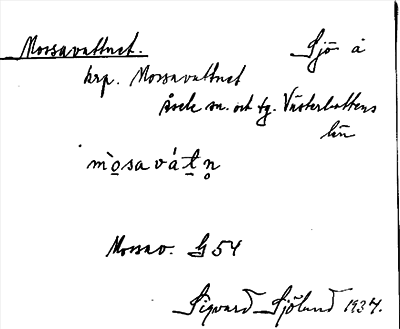 Mossavattnet. Sjö å
krp. Mossavattnet
Åsele sn. och tg. Västerbottens
län
m̀o̱savát̠n̥
Mossav. G 54
Sigvard Sjölund 1937.